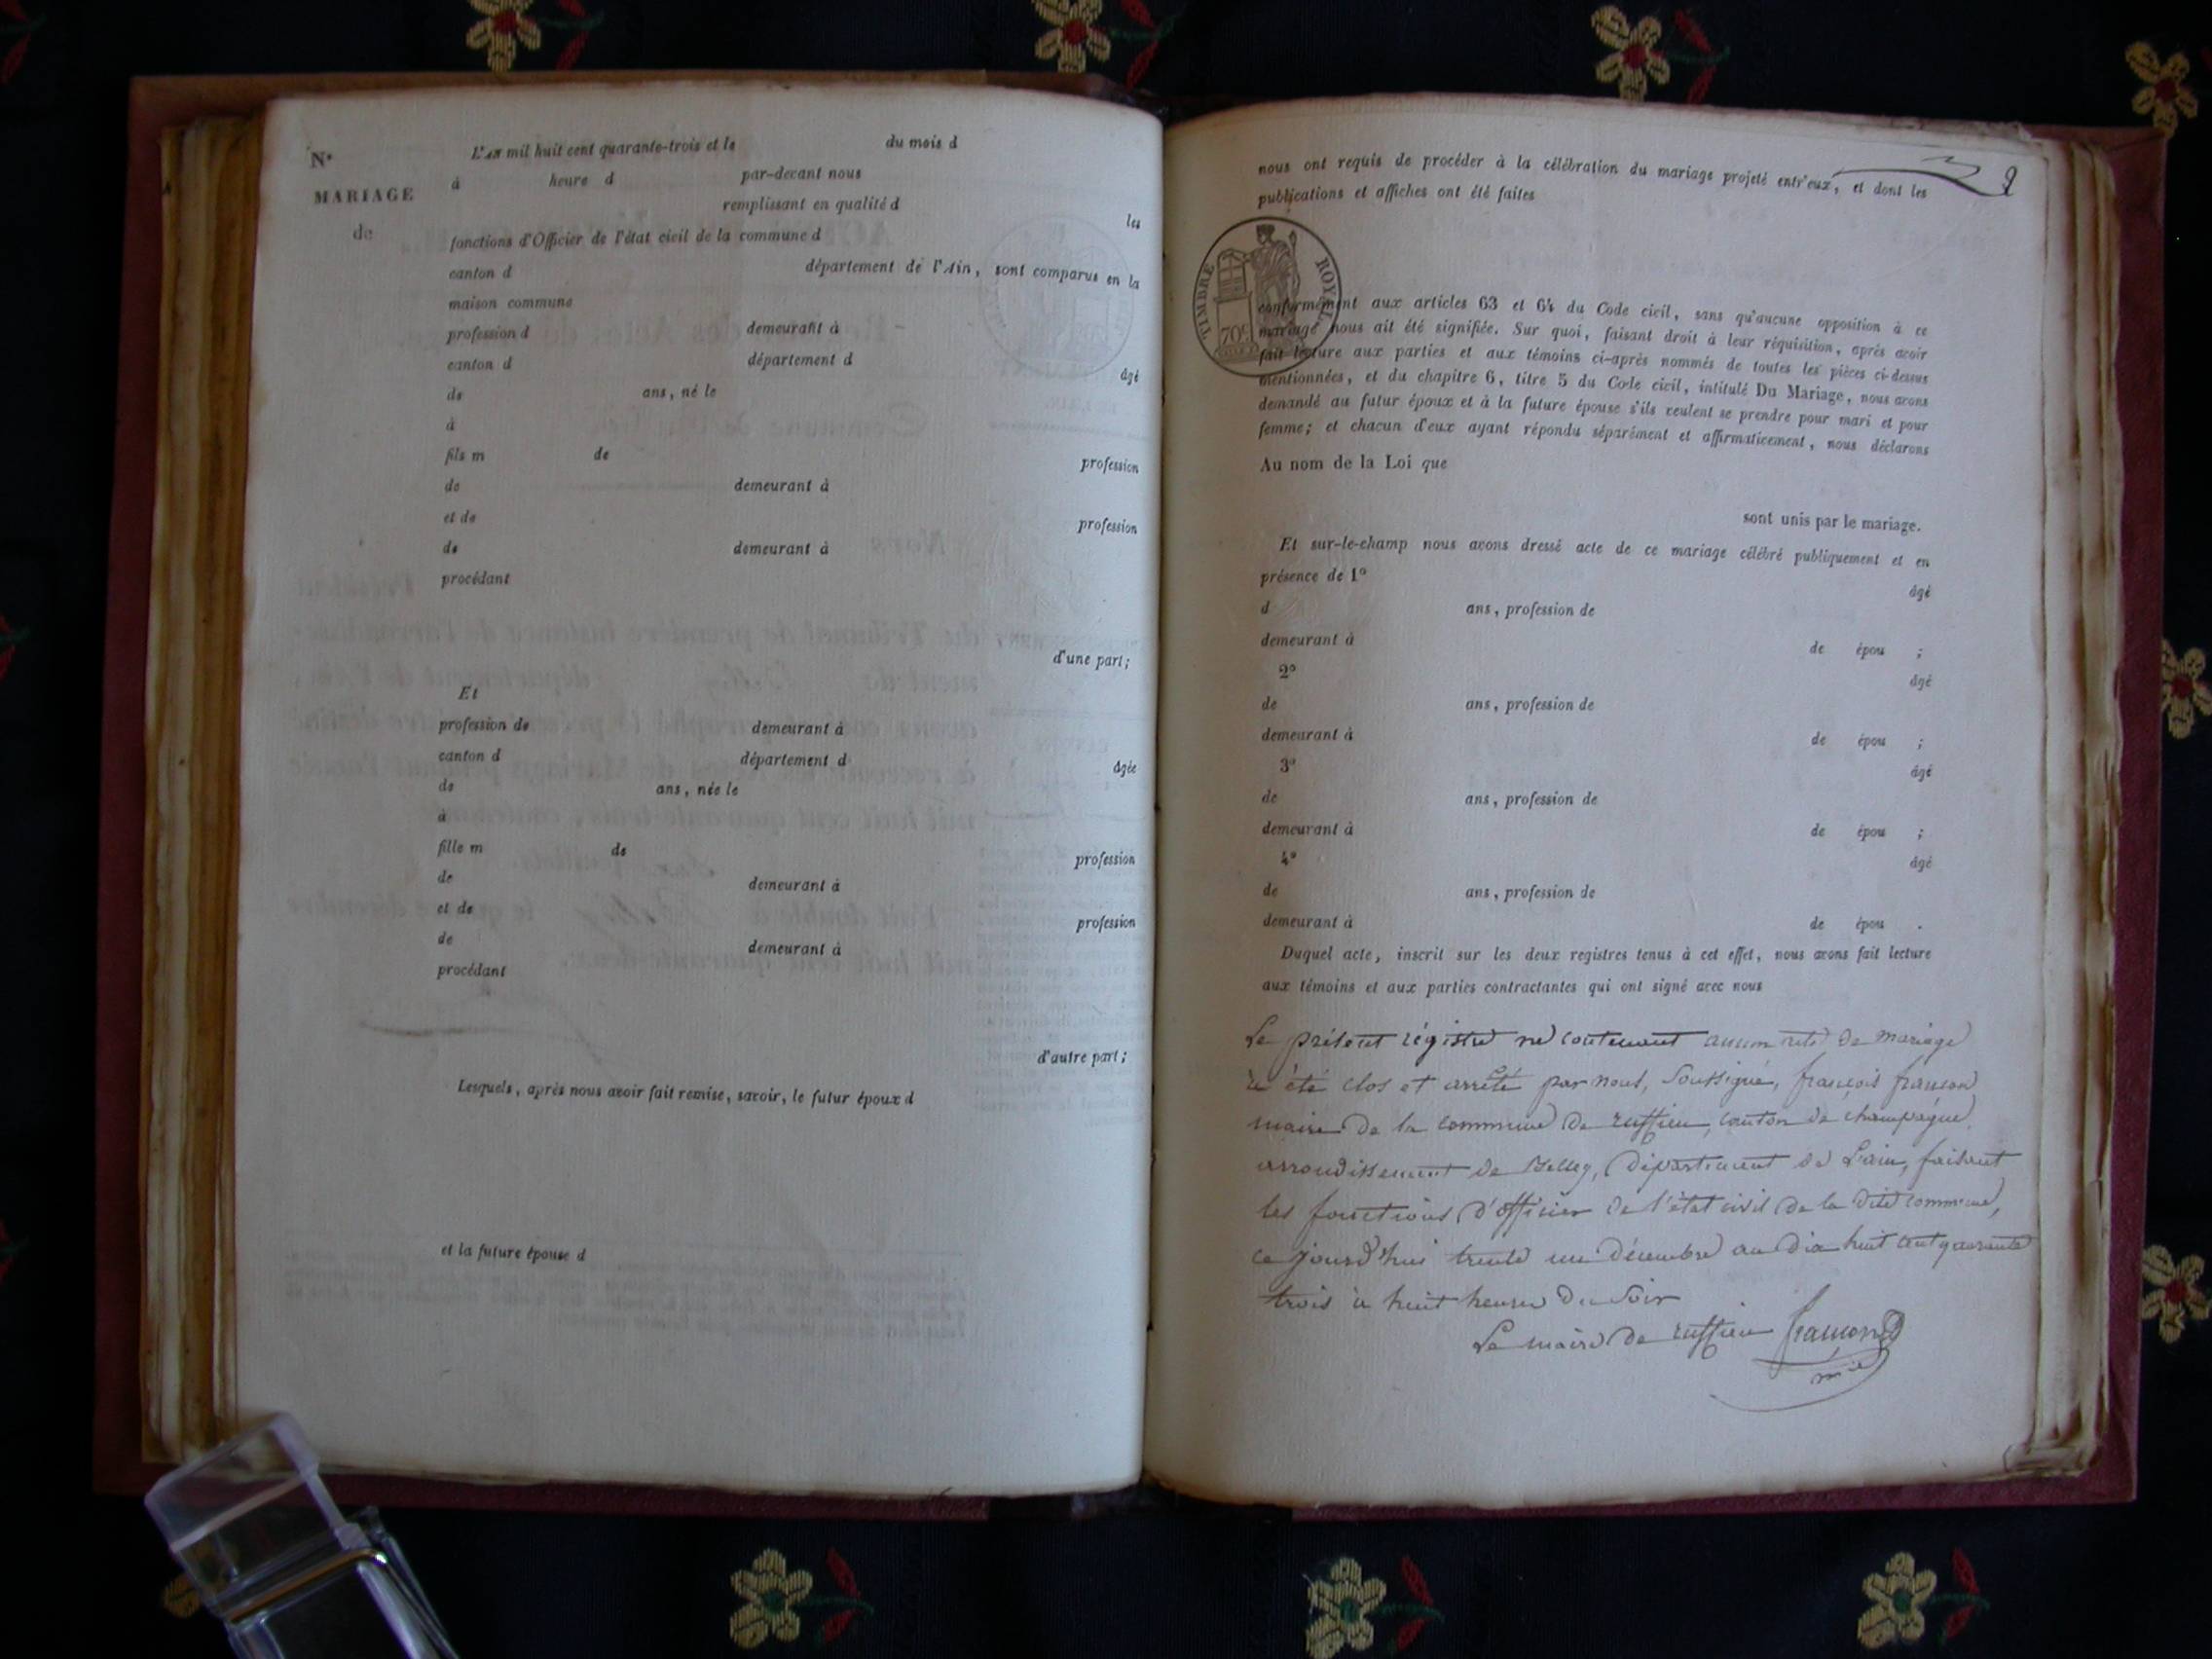 N°
MARIAGE
de
L'AN mil huit cent quarante-trois et le du mois d
à heure d par-devant nous
remplissant en qualité d les
fonctions d'Officier de l'état civil de la commune d
canton d département de l'Ain, sont comparus en la
maison commune
profession d demeurant à
canton d département d âgé
de ans, né le
à
fils m de profession
de demeurant à
et de profession
de demeurant à
procédant
d'une part;
Et
profession de demeurant à
canton d département d âgée
de ans, née le
à
fille m de profession
de demeurant à
et de profession
de demeurant à
procédant
d'autre part;
Lesquels, après nous avoir fait remise, savoir, le futur époux d
et la future épouse d
2
nous ont requis de procéder à la célébration du mariage projeté entr'eux, et dont les
publications et affiches ont été faites
TIMBRE ROYAL
70c
conformément aux articles 63 et 64 du Code civil, sans qu'aucune opposition à ce
mariage nous ait été signifiée. Sur quoi, faisant droit à leur réquisition, après avoir
fait lecture aux parties et aux témoins ci-après nommés de toutes les pièces ci-dessus
mentionnées, et du chapitre 6, titre 5 du Code civil, intitulé Du Mariage, nous avons
demandé au futur époux et à la future épouse s'ils veulent se prendre pour mari et pour
femme; et chacun d'eux ayant répondu séparément et affirmativement, nous déclarons
Au nom de la Loi que
sont unis par le mariage.
Et sur-le-champ nous avons dressé acte de ce mariage célébré publiquement et en
présence de 1° âgé
d ans, profession de
demeurant à de épou ;
2° âgé
de ans, profession de
demeurant à de épou ;
3° âgé
de ans, profession de
demeurant à de épou ;
4° âgé
de ans, profession de
demeurant à de épou .
Duquel acte, inscrit sur les deux registres tenus à cet effet, nous avons fait lecture
aux témoins et aux parties contractantes qui ont signé avec nous
Le présent régistre ne contenant aucun acte de mariage
a été clos et arrêté par nous, soussigné, françois francon
maire de la commune de ruffieu, canton de champagne,
arrondissement de Belley, département de L'ain, faisant
les fonctions d'officier de l'état civil de la dite commune,
ce jourd'hui trente un décembre an dix huit cent quarante
trois à huit heures du soir
Le maire de ruffieu francon